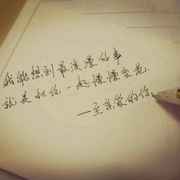 我能想到最浪漫的事
就是和你一起慢慢变老
—至亲爱的你